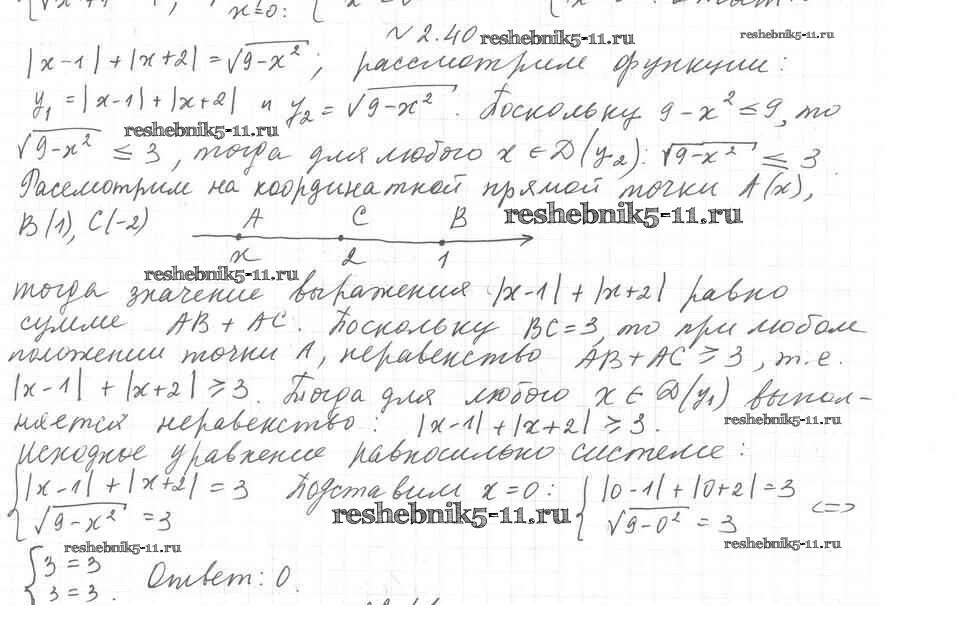 x=0:
№ 2.40 reshebnik5-11.ru reshebnik5-11.ru
|x-1|+|x+2|=√9-x²; рассмотрим функции:
y₁=|x-1|+|x+2| и y₂=√9-x². Поскольку 9-x²≤9, то
reshebnik5-11.ru
√9-x² ≤ 3, тогда для любого x∈D(y₂): √9-x² ≤ 3.
Рассмотрим на координатной прямой точки A(x),
B(1), C(-2) A C B reshebnik5-11.ru
x 2 1
reshebnik5-11.ru
тогда значение выражения |x-1|+|x+2| равно
сумме AB+AC. Поскольку BC=3, то при любом
положении точки A, неравенство AB+AC≥3, т.е.
|x-1|+|x+2|≥3. Тогда для любого x∈D(y₁) выпол-
няется неравенство: |x-1|+|x+2|≥3. reshebnik5-11.ru
исходное уравнение равносильно системе:
{|x-1|+|x+2|=3 Подставим x=0: {|0-1|+|0+2|=3
√9-x²=3 reshebnik5-11.ru √9-0²=3 <=>
reshebnik5-11.ru reshebnik5-11.ru
{3=3
3=3. Ответ: 0.